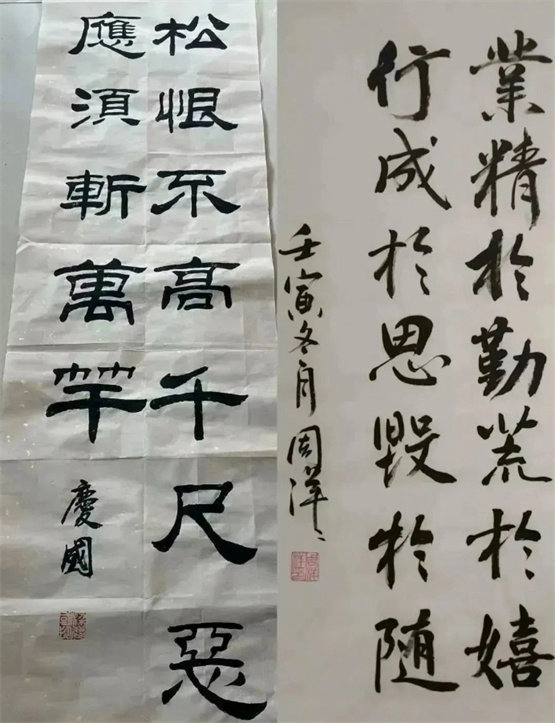 松恨不高千尺惡
應須斬萬竿
慶國
業精於勤荒於嬉
行成於思毀於隨
壬寅冬月周洋